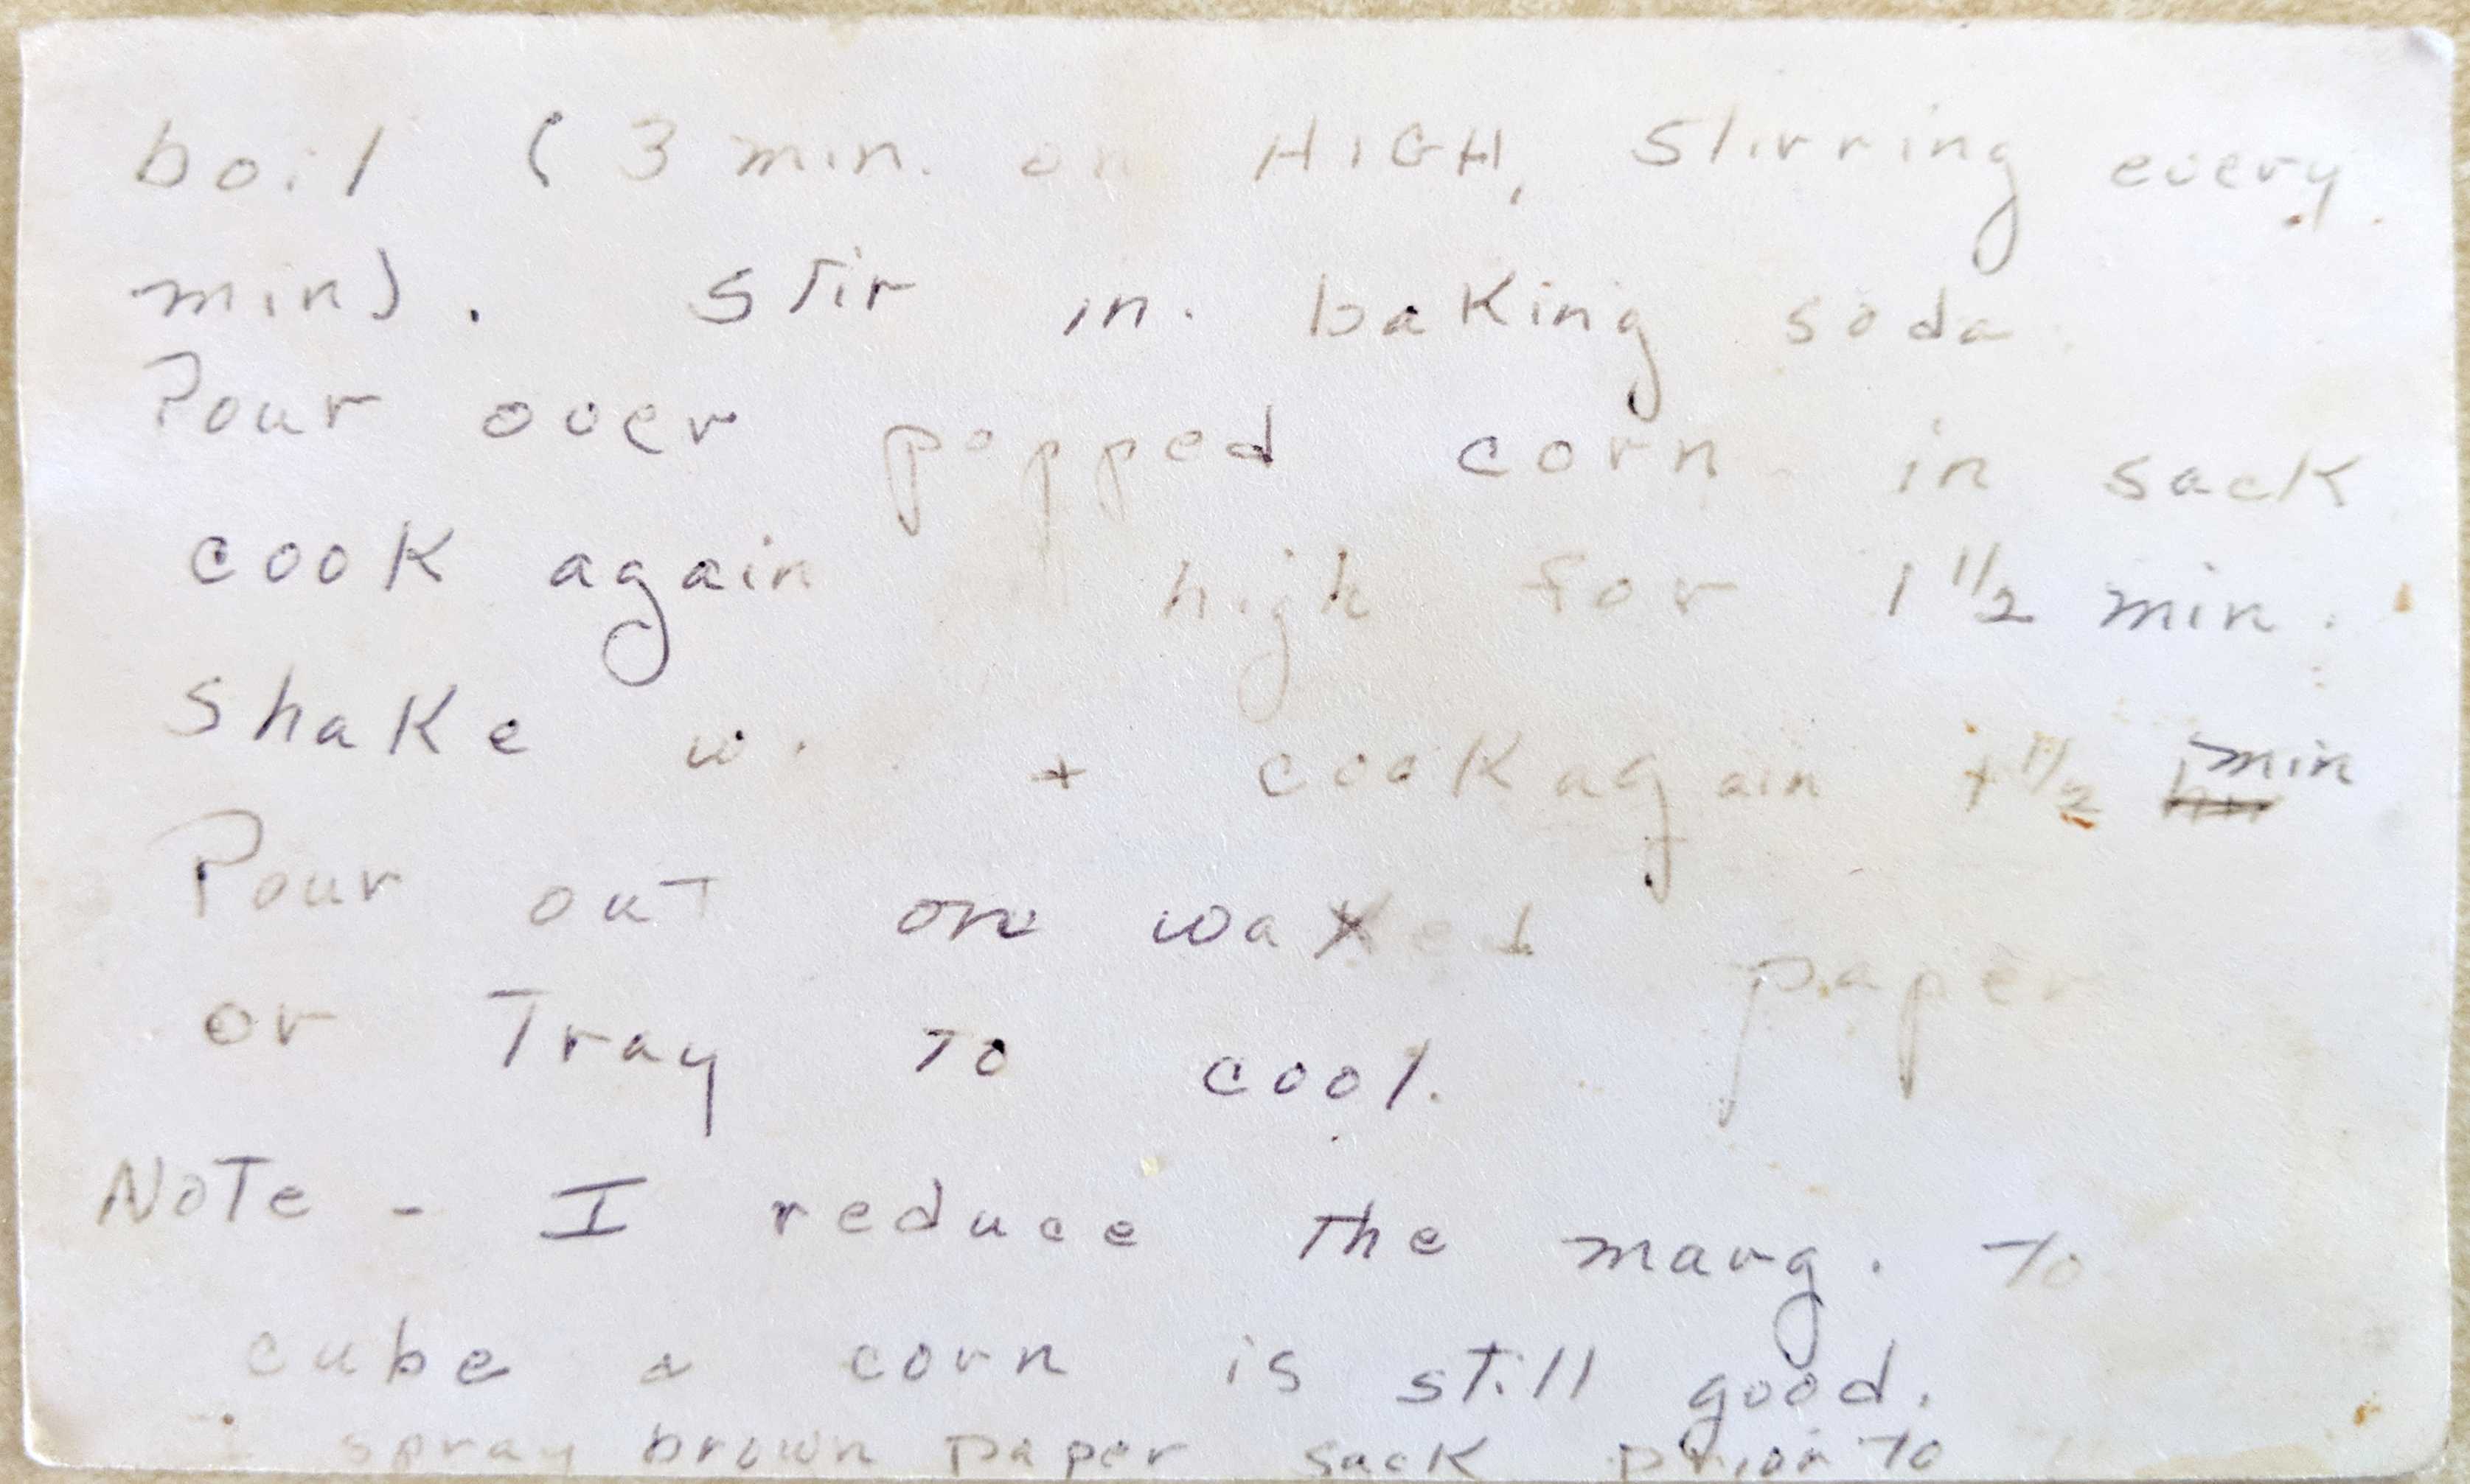 boil (3 min. on HIGH, Stirring every
min). Stir in. baking soda
Pour over popped corn in sack
cook again high for 1 1/2 min.
Shake + cook again + 1/2 min
Pour out on waxed paper
or Tray To cool.
Note - I reduce the marg. To
cube + corn is still good.
spray brown paper sack prior to